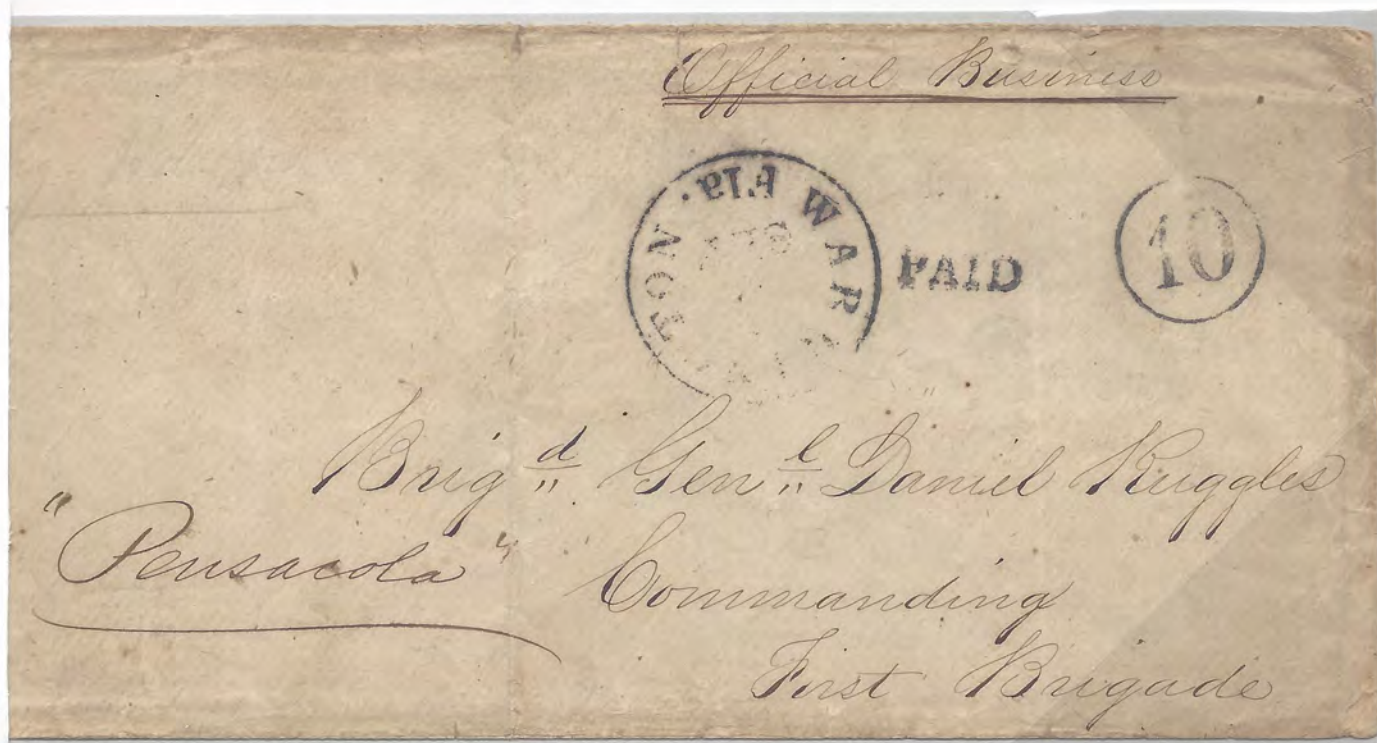 Official Business
WAR TON · Fla
PAID
10
Brig d Gen l Daniel Ruggles
"Pensacola"
Commanding
First Brigade